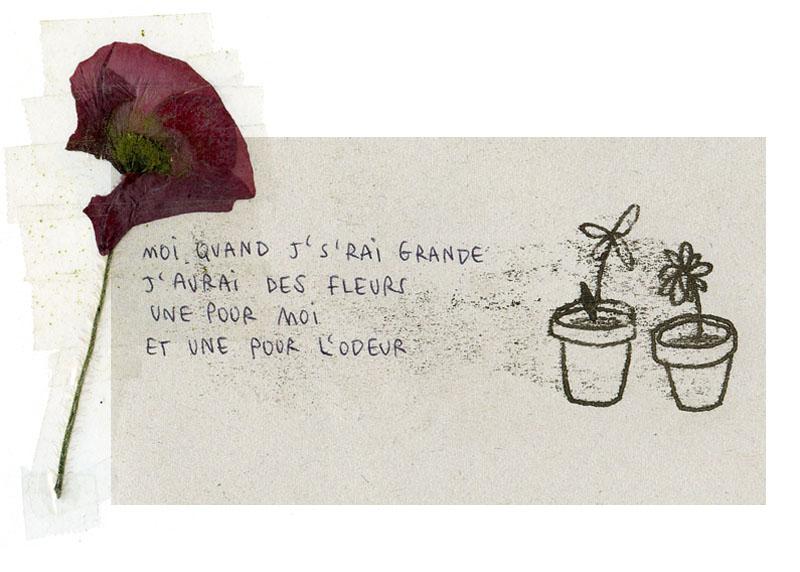 MOI QUAND J'S'RAI GRANDE
J'AURAI DES FLEURS
UNE POUR MOI
ET UNE POUR L'ODEUR